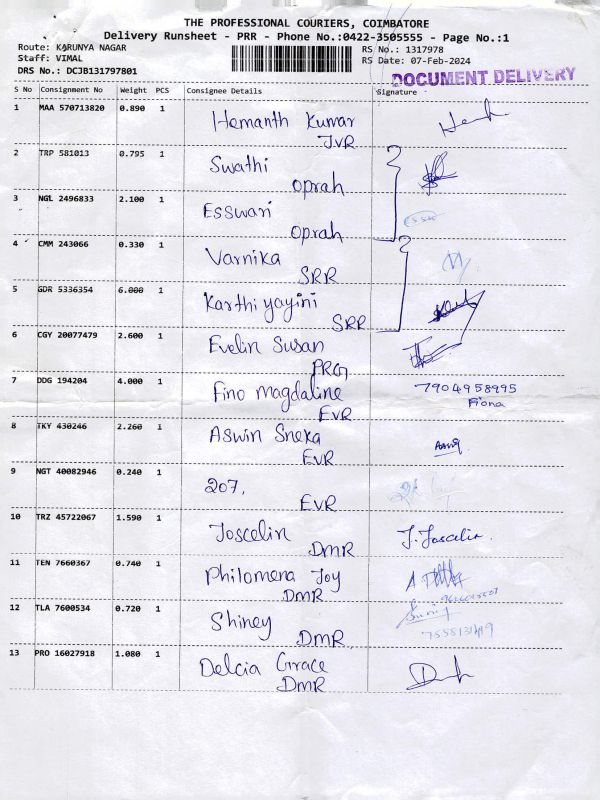 THE PROFESSIONAL COURIERS, COIMBATORE
Delivery Runsheet - PRR - Phone No.:0422-3505555 - Page No.:1
Route: KARUNYA NAGAR
RS No.: 1317978
Staff: VIMAL
RS Date: 07-Feb-2024
DRS No.: DCJB131797801
DOCUMENT DELIVERY
S No Consignment No Weight PCS Consignee Details Signature
1 MAA 570713820 0.890 1 Hemanth Kumar
JVR
2 TRP 581013 0.795 1 Swathi
Oprah
3 NGL 2496833 2.100 1 Esswari
Oprah
4 CMM 243066 0.330 1 Varnika
SRR
5 GDR 5336354 6.000 1 Karthiyayini
SRR
6 CGY 20077479 2.600 1 Evelin Susan
PRG
7 DDG 194204 4.000 1 Fino Magdaline 7904958995
EVR Fiona
8 TKY 430246 2.260 1 Aswin Sneka
EVR
9 NGT 40082946 0.240 1 207,
EVR
10 TRZ 45722067 1.590 1 Joscelin J. Joscelin.
DMR
11 TEN 7660367 0.740 1 Philomena Joy
DMR
12 TLA 7600534 0.720 1 Shiney
DMR
13 PRO 16027918 1.080 1 Delcia Grace
DMR